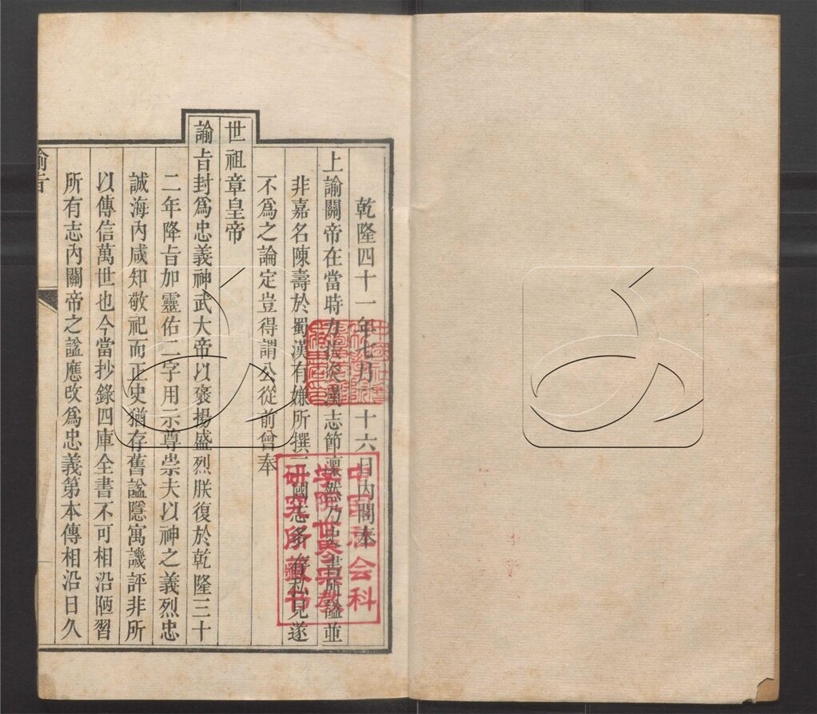 乾隆四十一年七月二十六日內閣奉
上諭關帝在當時力扶炎漢志節凜然乃史書所謚並
非嘉名陳壽於蜀漢有嫌所撰三國志多存私見遂
不為之論定豈得謂公從前曾奉
世祖章皇帝
諭旨封為忠義神武大帝以褒揚盛烈朕復於乾隆三十
二年降旨加靈佑二字用示尊崇夫以神之義烈忠
誠海內咸知敬祀而正史猶存舊謚隱寓譏評非所
以傳信萬世也今當抄錄四庫全書不可相沿陋習
所有志內關帝之謚應改為忠義第本傳相沿日久
諭旨
中国社会科
学院世界宗教
研究所藏书